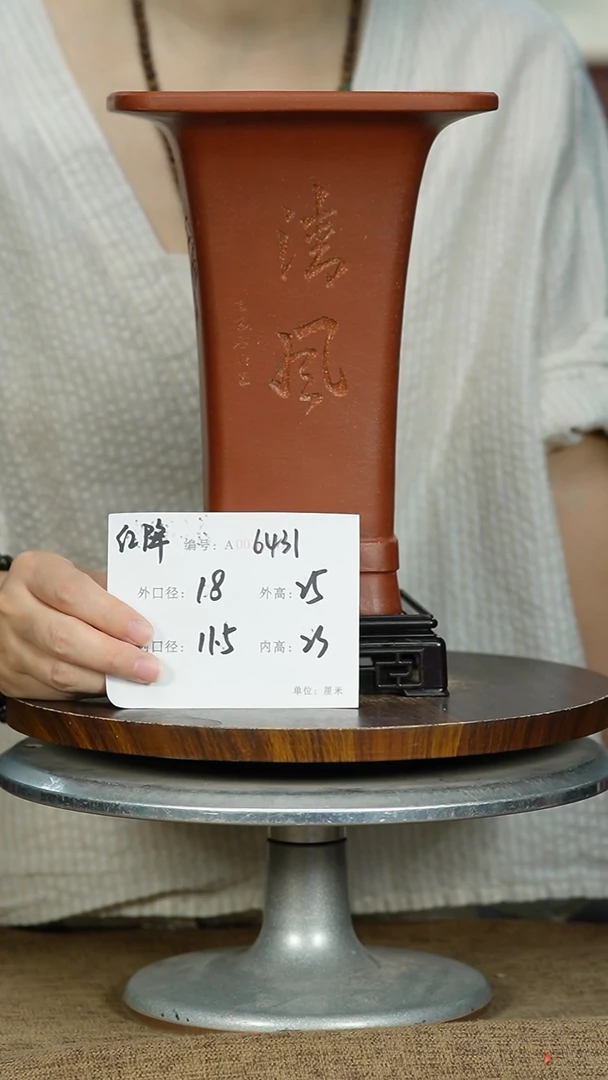 清
风
红降 编号: A006431
外口径: 18 外高: 25
内口径: 11.5 内高: 23
单位: 厘米